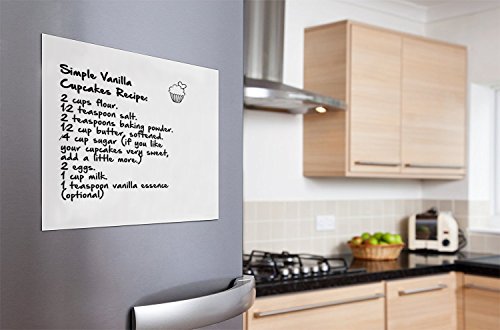 Simple Vanilla
Cupcakes Recipe:
2 cups flour.
1/2 teaspoon salt.
2 teaspoons baking powder.
1/2 cup butter, softened.
/4 cup sugar (if you like
your cupcakes very sweet,
add a little more.)
2 eggs.
1 cup milk.
1 teaspoon vanilla essence
(optional)